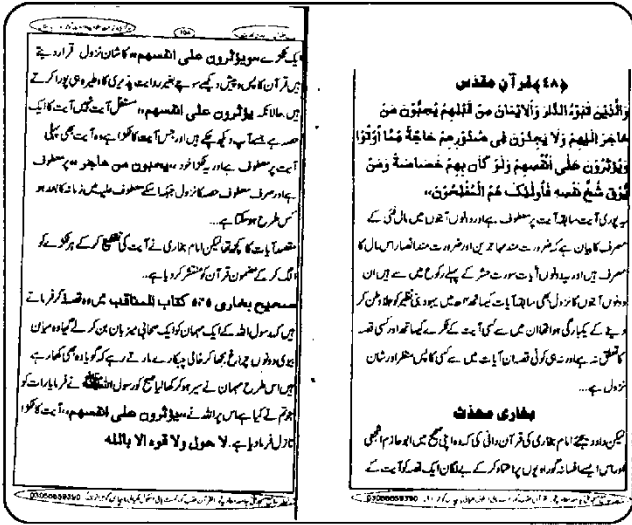 ﴿۴۸﴾ قرآن مقدس
وَالَّذِيْنَ تَبَوَّؤُ الدَّارَ وَالْاِيْمَانَ مِنْ قَبْلِهِمْ يُحِبُّوْنَ مَنْ
هَاجَرَ اِلَيْهِمْ وَلَا يَجِدُوْنَ فِى صُدُوْرِهِمْ حَاجَةً مِّمَّا اُوْتُوْا
وَيُؤْثِرُوْنَ عَلٰى اَنْفُسِهِمْ وَلَوْ كَانَ بِهِمْ خَصَاصَةٌ وَمَنْ
يُّوْقَ شُحَّ نَفْسِهٖ فَاُولٰئِكَ هُمُ الْمُفْلِحُوْنَ،،
یہ پوری آیت سابقہ آیت پر معطوف ہے اور دونوں آیتوں میں مال فئی کے
مصرف کا بیان ہے کہ ضرورت مند مہاجرین اور ضرورت مند انصار اس مال کا
مصرف ہیں اور یہ دونوں آیات سورت حشر کے پہلے رکوع میں سے ہیں ان
دونوں آیتوں کا نزول بھی سابقہ آیات کیساتھ میں یہود بنی نظیر کو جلا وطن کر
دینے کے یکبارگی ہوا تھا ان میں سے کسی آیت کے ٹکڑے کیساتھ اور کسی قصہ
کا تعلق نہ ہے اور نہ ہی کوئی قصہ ان آیات میں سے کسی کا پس منظر اور شان
نزول ہے...
بخاری محدث
لیکن داد دیجئے امام بخاری کی قرآن دانی کی کہ وہ اپنی صحیح میں ابو حازم اشجعی
اور اس ایسے افسانہ گو راویوں پر اعتماد کر کے بے تکان ایک قصہ کو آیت کے
ایک ٹکڑے ،،ویؤثرون علی انفسھم،، کا شان نزول قرار دیتے
ہیں قرآن کا پس و پیش دیکھے سوچے بغیر روایت پذیری کا وطیرہ ہی پورا کرتے
ہیں حالانکہ یؤثرون علی انفسھم،، مستقل آیت نہیں آیت کا ایک
حصہ ہے جسے آپ دیکھ چکے ہیں اور جس آیت کا ٹکڑا ہے وہ آیت بھی پہلی
آیت پر معطوف ہے اور یہ ٹکڑا خود ،،یحبون من ھاجر،، پر معطوف
ہے اور صرف معطوف حصہ کا نزول جبکہ اسکے معطوف علیہ میں زمانہ کا بعد ہو
کس طرح ہو سکتا ہے...
مقصد آیات کا کچھ تھا لیکن امام بخاری نے آیت کی تقطیع کر کے ہر ٹکڑے کو
الگ کر کے مضمون قرآن کو منتشر کر دیا ہے...
صحیح بخاری ۵۳۵ کتاب المناقب میں وہ قصہ ذکر فرماتے
ہیں کہ رسول اللہ کے ایک مہمان کو ایک صحابی میزبان بن کر لے گیا وہ میاں
بیوی دونوں چراغ بجھا کر خالی چپکارے مارتے رہے کہ گویا وہ بھی کھا رہے
ہیں اس طرح مہمان نے سیر ہو کر کھا لیا صبح کو رسول اللہ ﷺ نے فرمایا رات کو
جو تم نے کیا ہے اس پر اللہ نے ،،یؤثرون علی انفسھم،، آیت کا ٹکڑا
نازل فرما دیا ہے. لا حول ولا قوہ الا باللہ